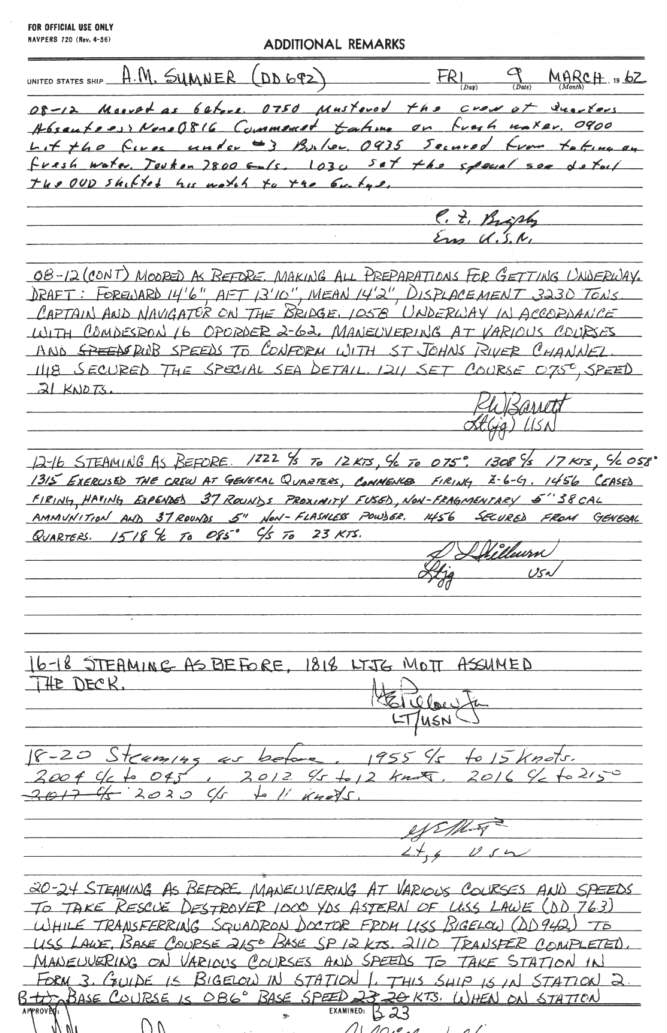 FOR OFFICIAL USE ONLY
NAVPERS 720 (Rev. 4-56)
ADDITIONAL REMARKS
UNITED STATES SHIP A.M. SUMNER (DD692) FRI 9 MARCH 1962
(Day) (Date) (Month)
08-12 Moored as before. 0750 Mustered the crew at quarters
Absentees: None 0816 Commenced taking on fresh water. 0900
Lit the fires under #3 Boiler. 0935 Secured from taking on
fresh water. Taken 7800 Gals. 1030 Set the special sea detail
the OOD shifted his watch to the
Ens U.S.N.
08-12 (CONT) MOORED AS BEFORE. MAKING ALL PREPARATIONS FOR GETTING UNDERWAY.
DRAFT: FOREWARD 14'6", AFT 13'10", MEAN 14'2", DISPLACEMENT 3230 TONS.
CAPTAIN AND NAVIGATOR ON THE BRIDGE. 1058 UNDERWAY IN ACCORDANCE
WITH COMDESRON 16 OPORDER 2-62. MANEUVERING AT VARIOUS COURSES
AND SPEEDS RWB SPEEDS TO CONFORM WITH ST JOHNS RIVER CHANNEL.
1118 SECURED THE SPECIAL SEA DETAIL. 1211 SET COURSE 075°, SPEED
21 KNOTS.
RWBarrett
Lt(jg) USN
12-16 STEAMING AS BEFORE. 1222 C/S TO 12 KTS, C/C TO 075°. 1308 C/S 17 KTS, C/C 058°
1315 EXERCISED THE CREW AT GENERAL QUARTERS, COMMENCED FIRING Z-6-G. 1456 CEASED
FIRING, HAVING EXPENDED 37 ROUNDS PROXIMITY FUSED, NON-FRAGMENTARY 5" 38 CAL
AMMUNITION AND 37 ROUNDS 5" NON-FLASHLESS POWDER. 1456 SECURED FROM GENERAL
QUARTERS. 1518 C/C TO 085° C/S TO 23 KTS.
Ltjg USN
16-18 STEAMING AS BEFORE, 1818 LTJG MOTT ASSUMED
THE DECK.
LT/USN
18-20 Steaming as before. 1955 C/S to 15 knots.
2004 C/C to 045°, 2012 C/S to 12 knots. 2016 C/C to 215°
2017 C/S 2020 C/S to 11 knots.
Ltjg USN
20-24 STEAMING AS BEFORE MANEUVERING AT VARIOUS COURSES AND SPEEDS
TO TAKE RESCUE DESTROYER 1000 YDS ASTERN OF USS LAWE (DD 763)
WHILE TRANSFERRING SQUADRON DOCTOR FROM USS BIGELOW (DD942) TO
USS LAWE, BASE COURSE 215° BASE SP 12 KTS. 2110 TRANSFER COMPLETED.
MANEUVERING ON VARIOUS COURSES AND SPEEDS TO TAKE STATION IN
FORM 3. GUIDE IS BIGELOW IN STATION 1. THIS SHIP IS IN STATION 2.
BASE COURSE IS 086° BASE SPEED 23 20 KTS. WHEN ON STATION
APPROVED: EXAMINED: B 23